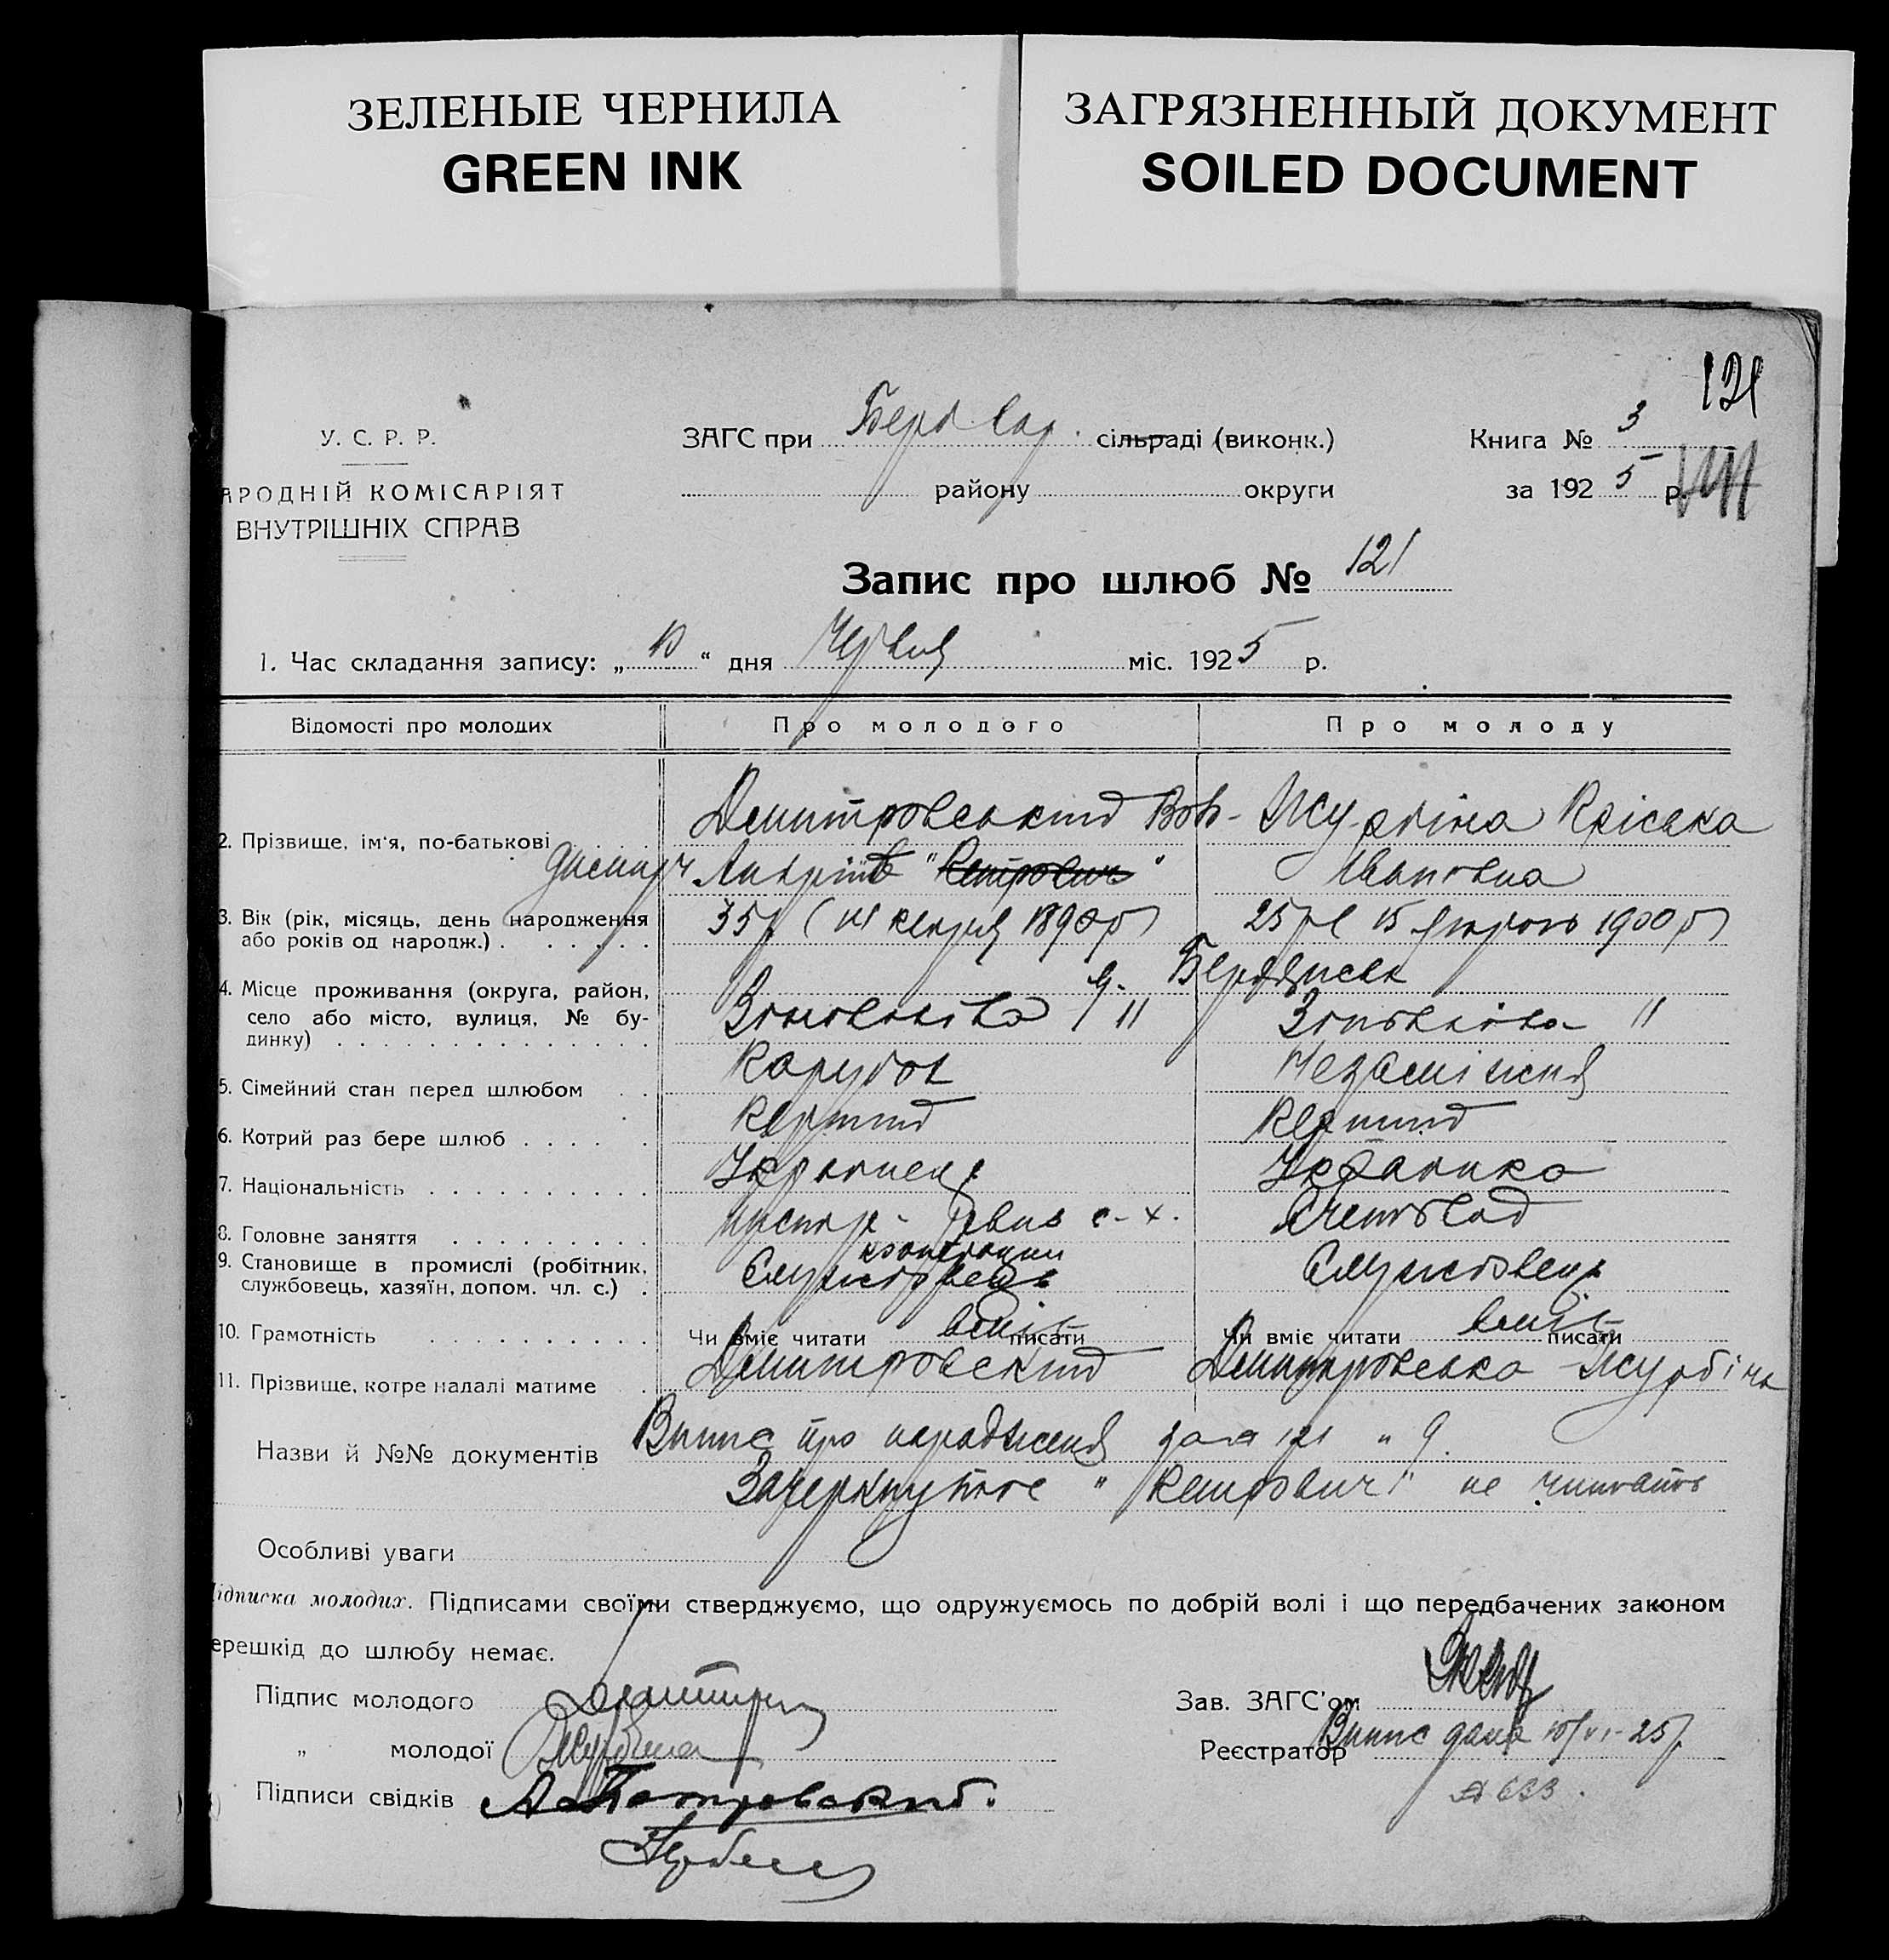 ЗЕЛЕНЫЕ ЧЕРНИЛА
GREEN INK
ЗАГРЯЗНЕННЫЙ ДОКУМЕНТ
SOILED DOCUMENT
121
У. С. Р. Р.
АРОДНІЙ КОМІСАРІЯТ
ВНУТРІШНІХ СПРАВ
ЗАГС при Берд сільраді (виконк.)
району округи
Книга № 3
за 1925 р.
Запис про шлюб № 121
1. Час складання запису: „ 10 “ дня Червня міс. 1925 р.
Відомості про молодих Про молодого Про молоду
2. Прізвище, ім'я, по-батькові
Дмитровський Журбіна
"Петрович" Івановна
3. Вік (рік, місяць, день народження
або років од народж.)
35 р. 1890 р 25 р 15 1900 р
4. Місце проживання (округа, район,
село або місто, вулиця, № бу-
динку)
м. Бердянськ
11 11
5. Сімейний стан перед шлюбом
Парубок Незаміжня
6. Котрий раз бере шлюб
Перший Перший
7. Національність
Українець Українка
8. Головне заняття
с-х. Рахівод
9. Становище в промислі (робітник,
службовець, хазяїн, допом. чл. с.)
кооперации
Службовець Службовець
10. Грамотність Чи вміє читати вміє писати Чи вміє читати вміє писати
11. Прізвище, котре надалі матиме
Дмитровский Дмитровська-Журбіна
Назви й №№ документів Випис про народження за № 121
Зачеркнутое "Петрович" не читать
Особливі уваги
ідписка молодих. Підписами своїми стверджуємо, що одружуємось по добрій волі і що передбачених законом
ерешкід до шлюбу немає.
Підпис молодого
Зав. ЗАГС'ом
„ молодої Журбина
Реєстратор Випис дана 10/VI-25 р
Підписи свідків А. Петровский.
№ 633.